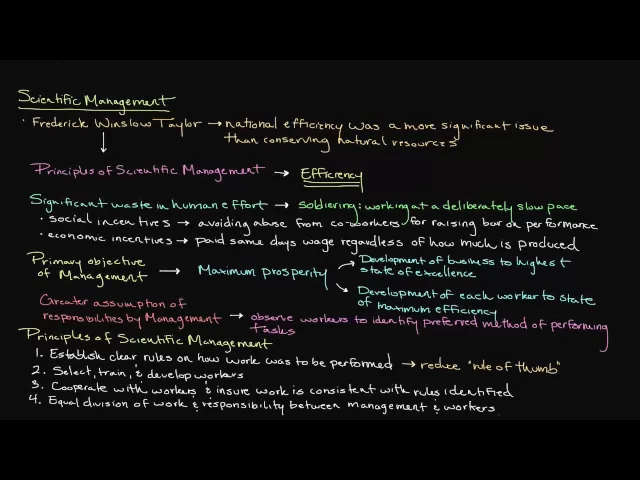 Scientific Management
· Frederick Winslow Taylor → national efficiency was a more significant issue
than conserving natural resources
Principles of Scientific Management → Efficiency
Significant waste in human effort → soldiering: working at a deliberately slow pace
· social incentives → avoiding abuse from co-workers for raising bar on performance
· economic incentives → paid same days wage regardless of how much is produced
Primary objective
of Management → Maximum prosperity
Development of business to highest
state of excellence
Development of each worker to state
of maximum efficiency
Greater assumption of
responsibilities by Management → observe workers to identify preferred method of performing
tasks
Principles of Scientific Management
1. Establish clear rules on how work was to be performed → reduce "rule of thumb"
2. Select, train, & develop workers
3. Cooperate with workers & insure work is consistent with rules identified
4. Equal division of work & responsibility between management & workers